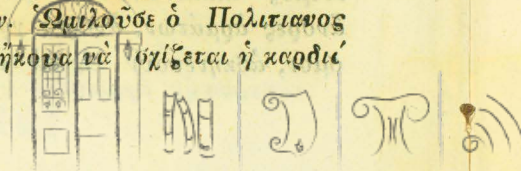 ν. Ὡμιλοῦσε ὁ Πολιτιανος
ἤκουα νὰ σχίζεται ἡ καρδι